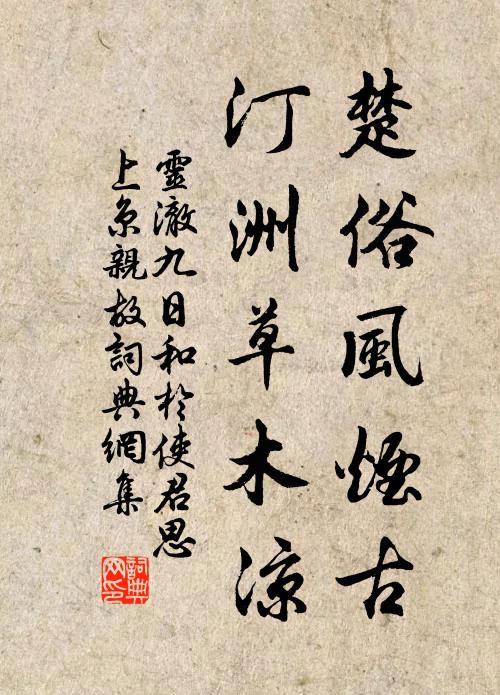 楚俗風煙古
汀洲草木涼
靈澈九日和於使君思
上京親故詞典網集
詞典
网印